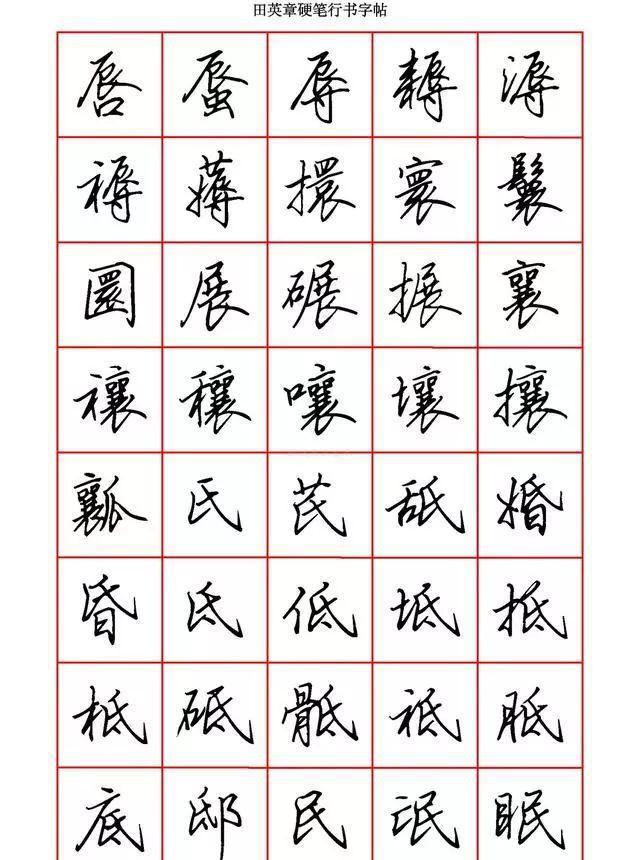 田英章硬笔行书字帖
唇蜃辱耨溽
褥薅擐寰鬟
圜展碾搌襄
禳穰嚷壤攘
瓤氏芪舐婚
昏氐低坻抵
柢砥骶祗胝
底邸民氓眠